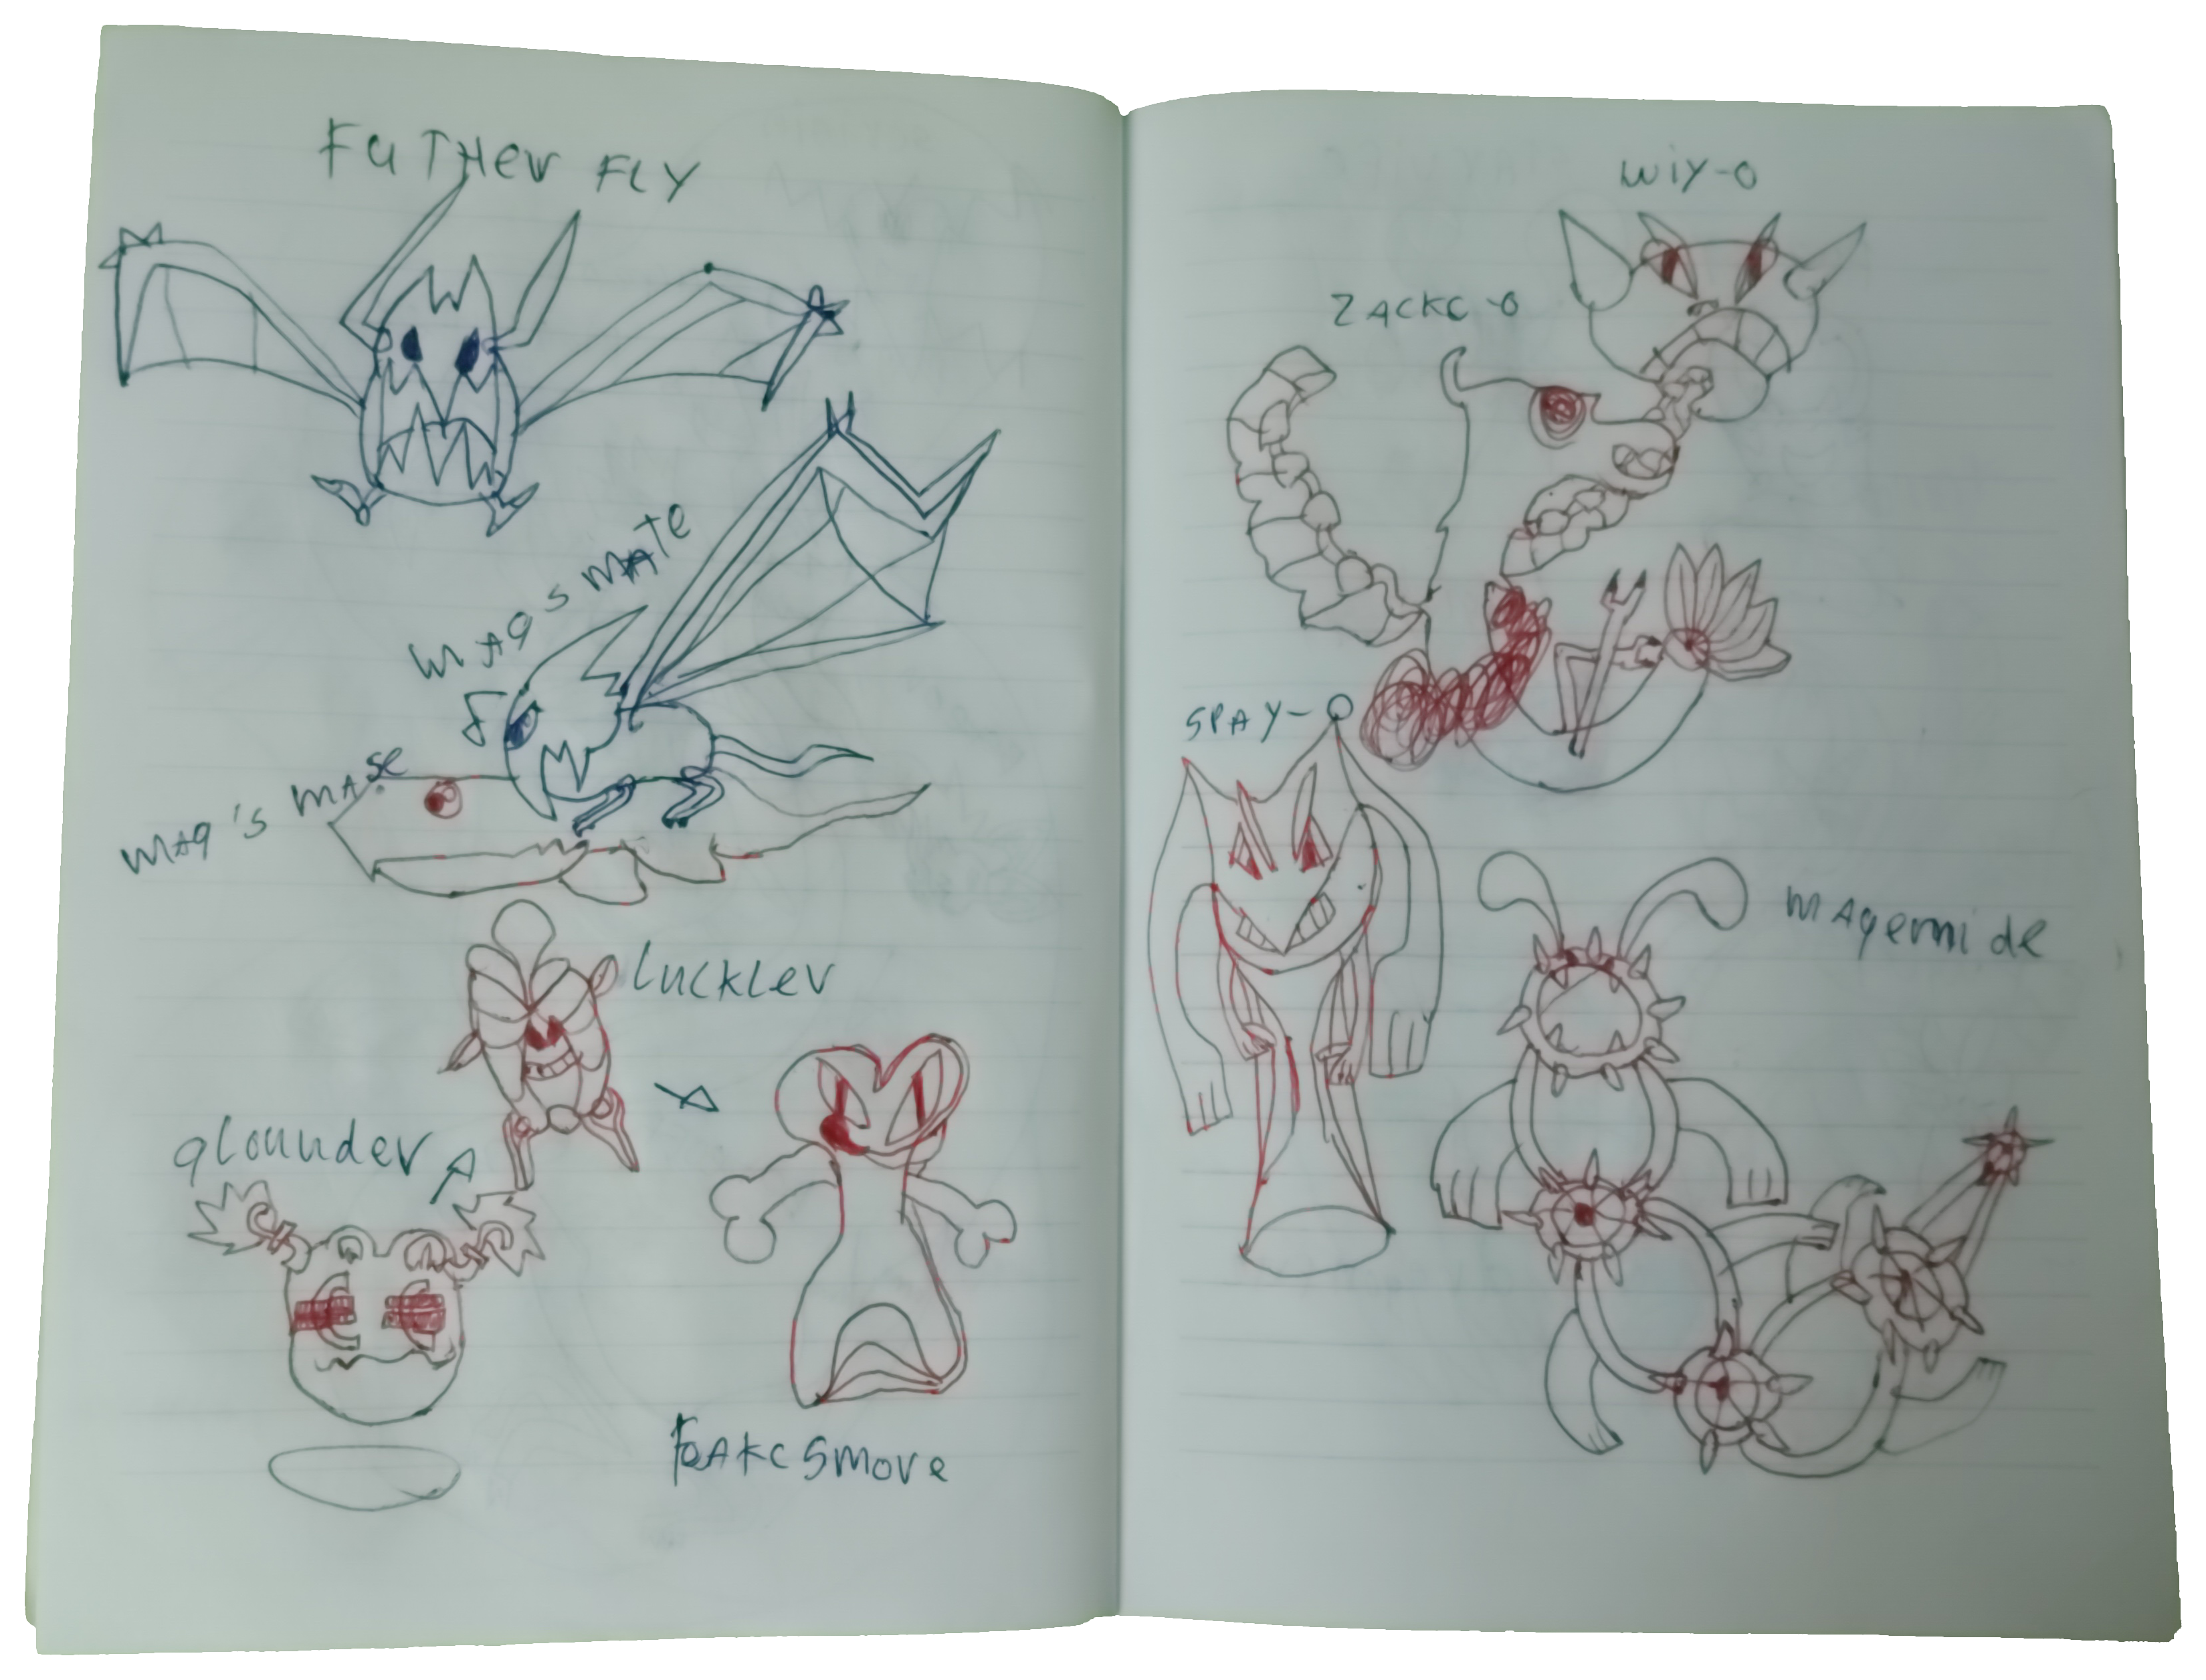 FaTHer FLY
mAg's mATe
mAg's mAse
Luckler
glounder
FeAKC Smore
wiy-o
ZACKC-o
SPAY-O
mAgemide